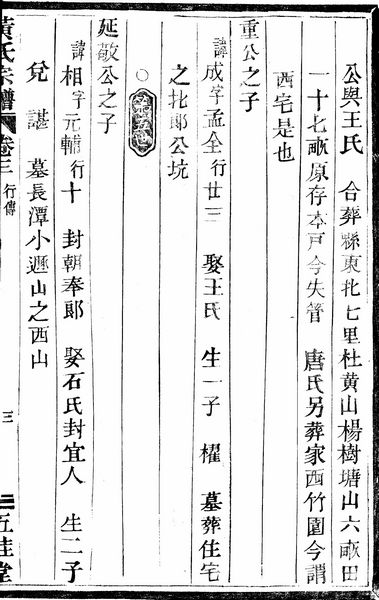 公與王氏　合葬縣東北七里杜黃山楊樹塘山六畝田
一十七畝原存本戶今失管　唐氏另葬家西竹園今謂
西宅是也
重公之子
諱成字孟全行廿三　娶王氏　生一子　櫂　墓葬住宅
之北郎公坑
○
延敬公之子
諱相字元輔行十　封朝奉郎　娶石氏封宜人　生二子
兌　諶　墓長潭小遯山之西山
黃氏宗譜　卷三　行傳　三　五桂堂